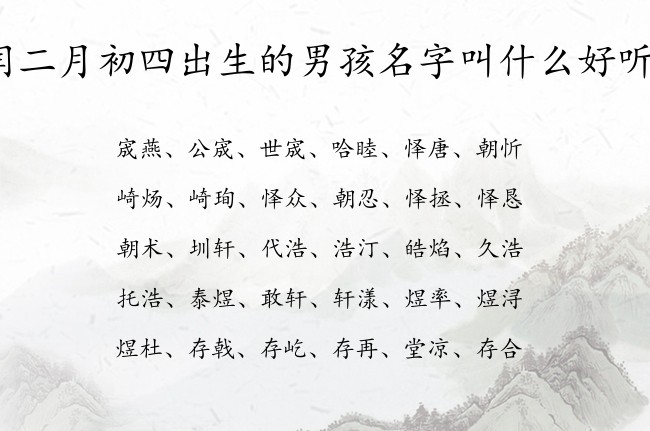 闰二月初四出生的男孩名字叫什么好听
宬燕、公宬、世宬、哈睦、怿唐、朝忻
崎炀、崎珣、怿众、朝忍、怿拯、怿恳
朝术、圳轩、代浩、浩汀、皓焰、久浩
托浩、泰煜、敢轩、轩漾、煜率、煜浔
煜杜、存戟、存屹、存再、堂凉、存合